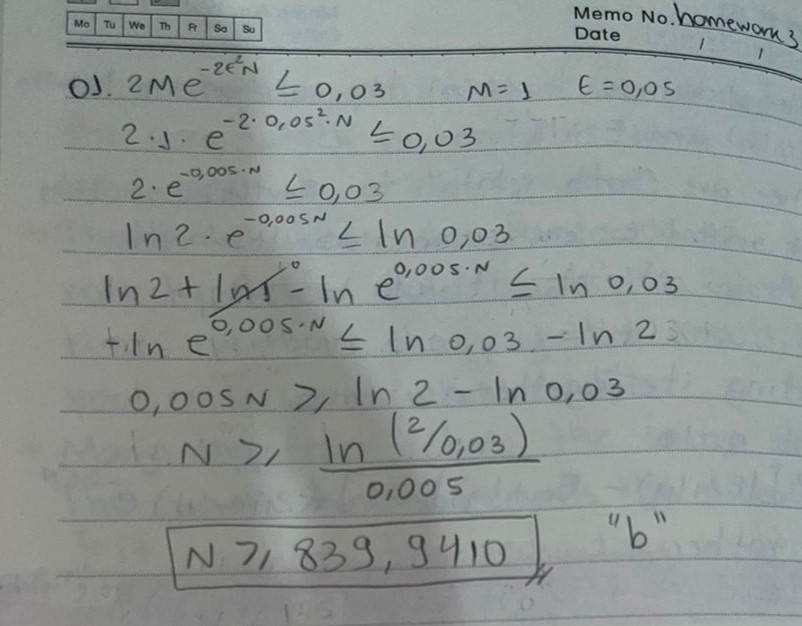 Mo Tu We Th Fr Sa Su
Memo No. homework 3
Date / /
01. 2Me^{-2ε²N} ≤ 0,03 M=1 ε=0,05
2·1·e^{-2·0,05²·N} ≤ 0,03
2·e^{-0,005·N} ≤ 0,03
ln 2·e^{-0,005N} ≤ ln 0,03
ln 2 + ln 1 ⁰ - ln e^{0,005·N} ≤ ln 0,03
+ln e^{0,005·N} ≤ ln 0,03 - ln 2
0,005N ≥ ln 2 - ln 0,03
N ≥ ln (2/0,03)
0,005
N ≥ 839,9410 "b"